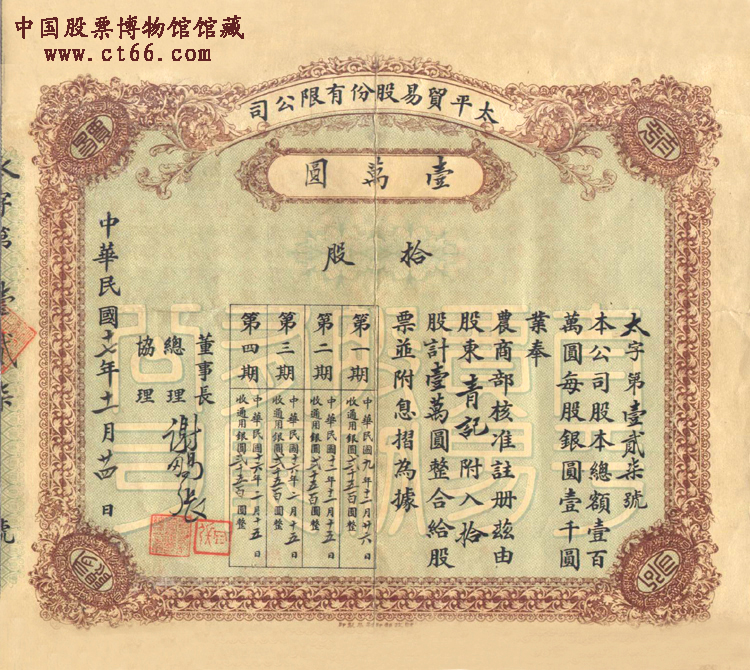 中国股票博物馆馆藏
www.ct66.com
太平貿易股份有限公司
壹萬圓
拾股
太字第壹貳柒號
本公司股本總額壹百
萬圓每股銀圓壹千圓
業奉
農商部核准註册茲由
股東青記附入拾
股計壹萬圓整合給股
票並附息摺為據
第一期 中華民國九年十二月廿六日收通用銀圓二千五百圓整
第二期 中華民國十一年十二月十五日收通用銀圓弍千五百圓整
第三期 中華民國十六年二月十五日收通用銀圓弍千五百圓整
第四期 中華民國十六年二月十五日收通用銀圓弍千五百圓整
董事長
總理
協理
中華民國十七年十一月廿四日